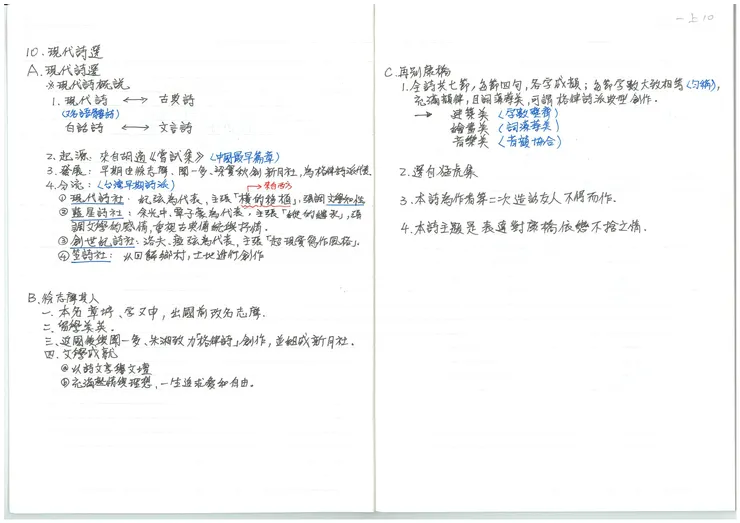 一上10
10. 現代詩選
A. 現代詩選
※現代詩概說
1. 現代詩 ←→ 古典詩
(又名語體詩)
白話詩 ←→ 文言詩
2. 起源：來自胡適《嘗試集》(中國最早篇章)
3. 發展：早期由徐志摩、聞一多、梁實秋創新月社，為格律詩派代表
4. 分流：(台灣早期詩派) →來自西方
① 現代詩社：紀弦為代表，主張「橫的移植」，強調文學知性
② 藍星詩社：余光中、覃子豪為代表，主張「縱的繼承」，強
調文學的感情，重視古典傳統與抒情.
③ 創世紀詩社：洛夫、瘂弦為代表，主張「超現實寫作風格」.
④ 笠詩社：以回歸鄉村，土地進行創作
B. 徐志摩其人
一. 本名章垿、字又申，出國前改名志摩.
二. 留學美英。
三. 返國後與聞一多、朱湘致力「格律詩」創作，並組成新月社.
四. 文學成就
ⓐ 以詩文享譽文壇
ⓑ 充滿熱情與理想，一生追求愛和自由。
C. 再別康橋
1. 全詩共七節，每節四句，各字成韻；每節字數大致相等(勻稱)，
充滿韻律，且詞藻華美，可謂格律詩派典型創作.
→ 建築美 (字數整齊)
繪畫美 (詞藻華美)
音樂美 (音韻協合)
2. 選自猛虎集
3. 本詩為作者第二次造訪友人不得而作.
4. 本詩主題是表達對康橋依戀不捨之情.